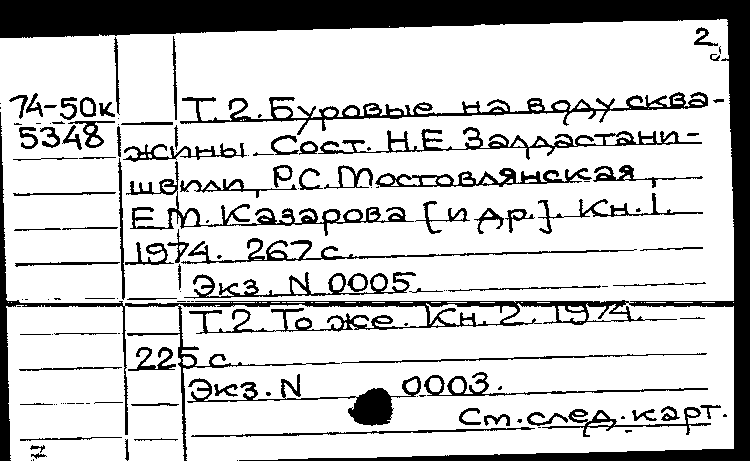 2
74-50к Т.2. Буровые на воду сква-
5348 жины. Сост. Н.Е. Залдастани-
швили, Р.С. Мостовлянская,
Е.М. Казарова [и др.]. Кн. 1.
1974. 267 с.
Экз. N 0005.
Т.2. То же. Кн. 2. 1974.
225 с.
Экз. N 0003.
См. след. карт.